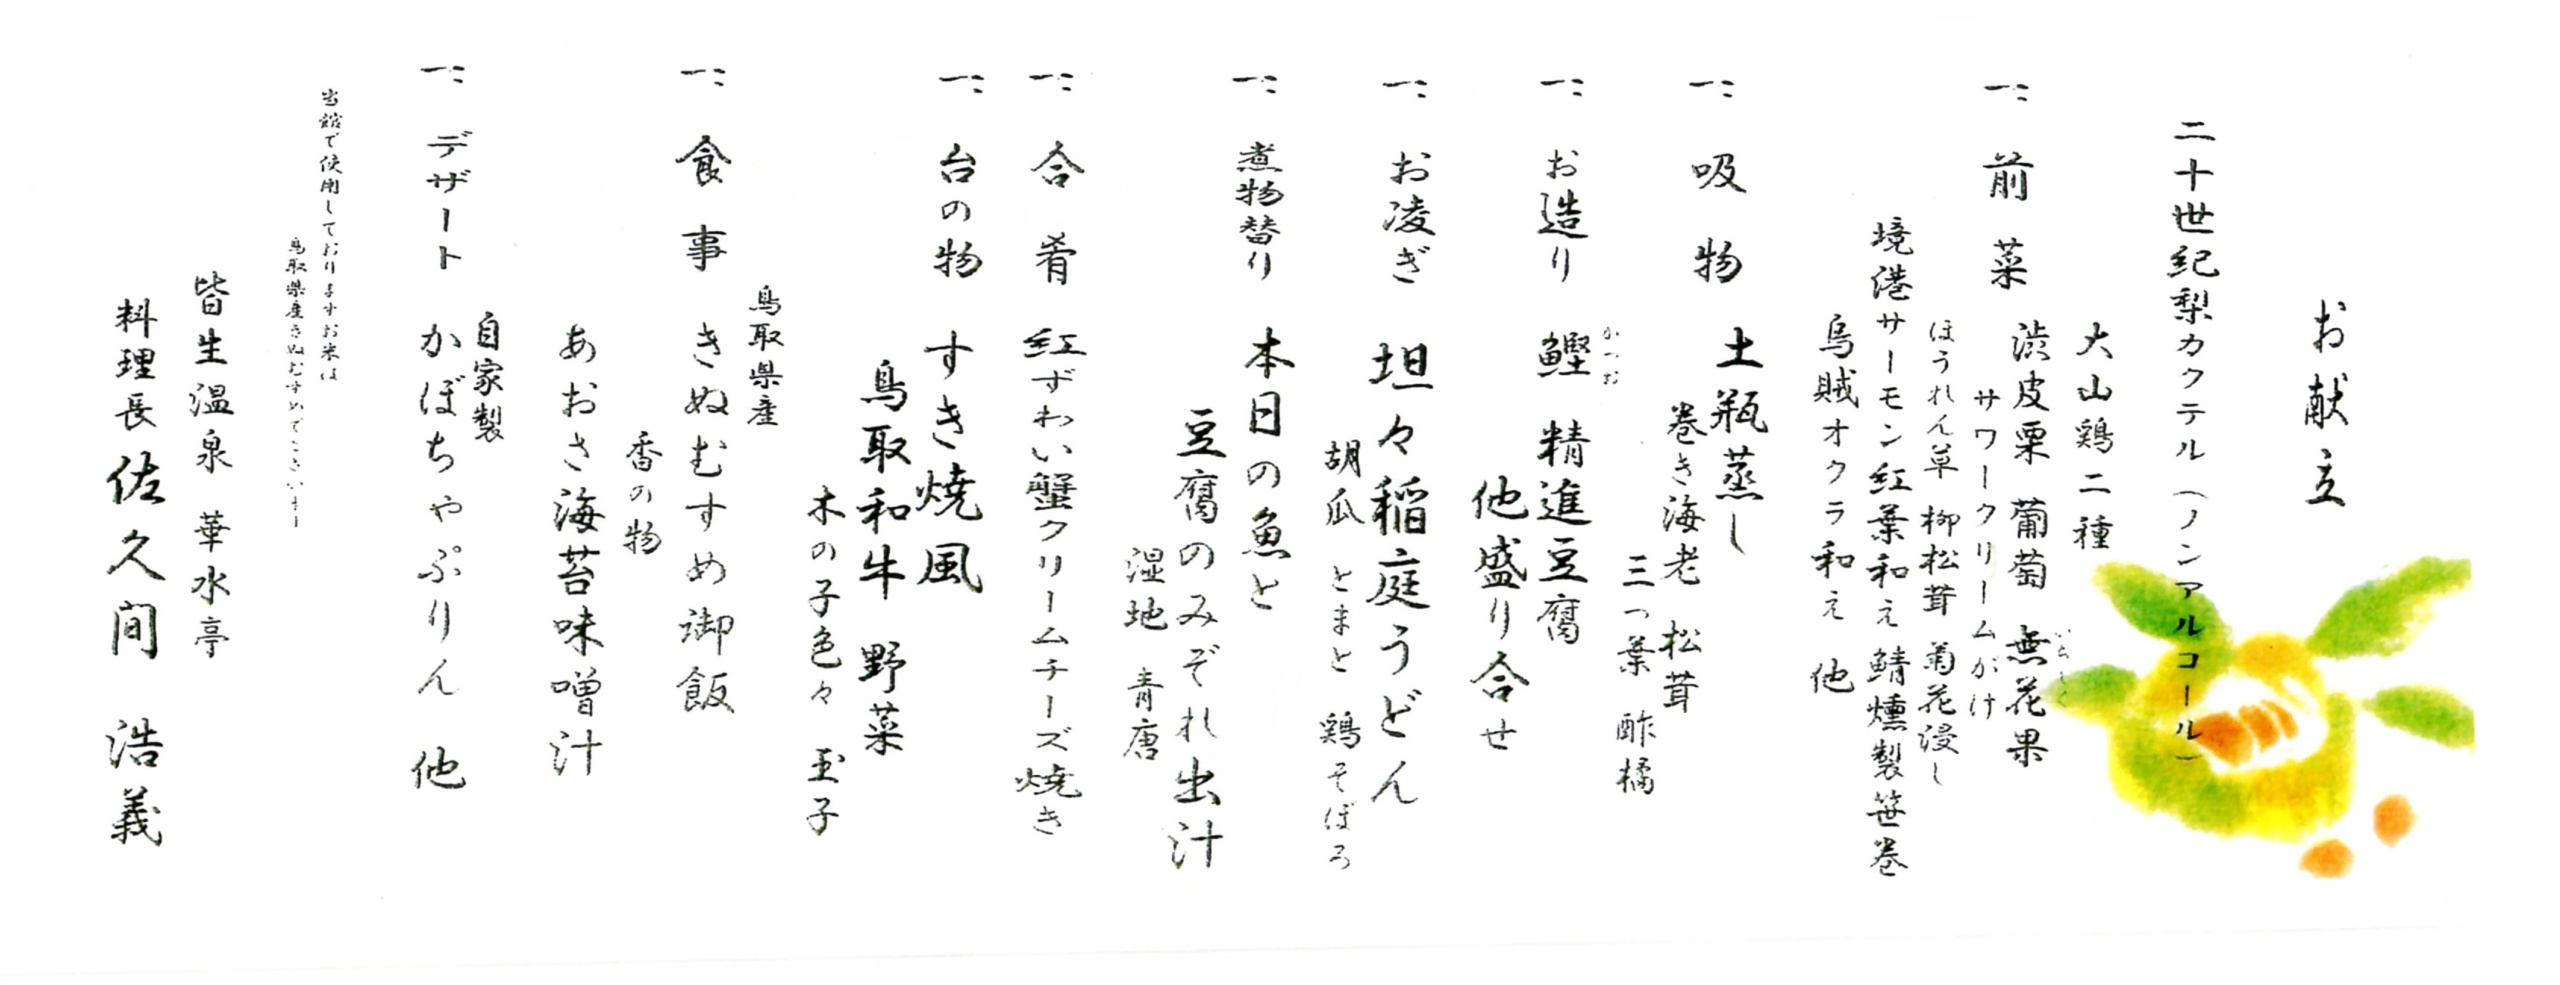 お献立
二十世紀梨カクテル(ノンアルコール)
一、前菜
大山鶏二種
渋皮栗 葡萄 無花果
いちじく
サワークリームがけ
ほうれん草 柳松茸 菊花浸し
境港サーモン紅葉和え 鯖燻製笹巻
烏賊オクラ和え 他
一、吸物 土瓶蒸し
巻き海老 松茸
三つ葉 酢橘
一、お造り 鰹 精進豆腐
かつお
他盛り合せ
一、お凌ぎ 坦々稲庭うどん
胡瓜 とまと 鶏そぼろ
一、煮物替り 本日の魚と
豆腐のみぞれ出汁
湿地 青唐
一、合肴 紅ずわい蟹クリームチーズ焼き
一、台の物 すき焼風
鳥取和牛 野菜
木の子色々 玉子
一、食事
鳥取県産
きぬむすめ御飯
香の物
あおさ海苔味噌汁
一、デザート
自家製
かぼちゃぷりん 他
当館で使用しておりますお米は
鳥取県産きぬむすめでございます
皆生温泉 華水亭
料理長 佐久間 浩義